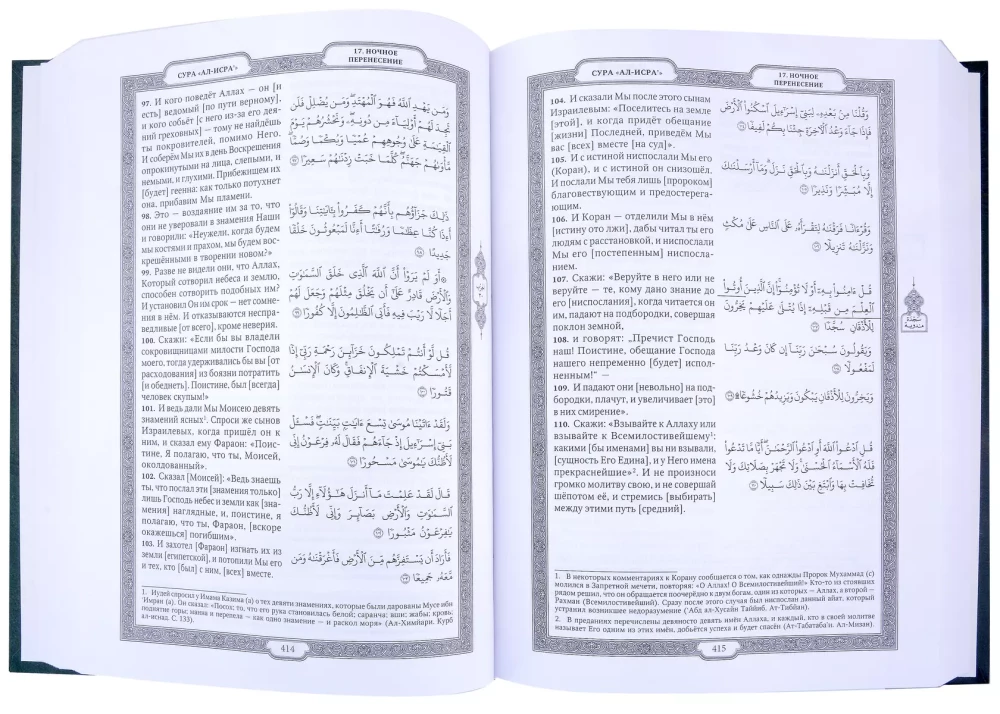 СУРА «АЛ-ИСРА'»
17. НОЧНОЕ
ПЕРЕНЕСЕНИЕ
97. И кого поведёт Аллах — он [и
есть] ведомый [по пути верному],
и кого собьёт [с него из-за его дея-
ний греховных] — тому не найдёшь
ты покровителей, помимо Него.
И соберём Мы их в день Воскрешения
опрокинутыми на лица, слепыми, и
немыми, и глухими. Прибежищем их
[будет] геенна: как только потухнет
она, прибавим Мы пламени.
98. Это — воздаяние им за то, что
они не уверовали в знамения Наши
и говорили: «Неужели, когда будем
мы костями и прахом, мы будем вос-
крешёнными в творении новом?»
99. Разве не видели они, что Аллах,
Который сотворил небеса и землю,
способен сотворить подобных им?
И установил Он им срок — нет сомне-
ния в нём. И отказываются несправ-
ведливые [от всего], кроме неверия.
100. Скажи: «Если бы вы владели
сокровищницами милости Господа
моего, тогда удерживались бы вы [от
расходования] из боязни потратить
[и обеднеть]. Поистине, был [всегда]
человек скупым!»
101. И ведь дали Мы Моисею девять
знамений ясных¹. Спроси же сынов
Израилевых, когда пришёл он к
ним, и сказал ему Фараон: «Поис-
тине, Я полагаю, что ты, Моисей,
околдованный».
102. Сказал [Моисей]: «Ведь знаешь
ты, что послал эти [знамения только]
лишь Господь небес и земли как [зна-
мения] наглядные, и, поистине, я
полагаю, что ты, Фараон, [вскоре
окажешься] погибшим».
103. И захотел [Фараон] изгнать их из
земли [египетской], и потопили Мы его
и тех, кто [был] с ним, [всех] вместе.
وَمَن يَهْدِ اللَّهُ فَهُوَ الْمُهْتَدِ ۖ وَمَن يُضْلِلْ فَلَن
تَجِدَ لَهُمْ أَوْلِيَاءَ مِن دُونِهِ ۖ وَنَحْشُرُهُمْ يَوْمَ
الْقِيَامَةِ عَلَىٰ وُجُوهِهِمْ عُمْيًا وَبُكْمًا وَصُمًّا ۖ
مَّأْوَاهُمْ جَهَنَّمُ ۖ كُلَّمَا خَبَتْ زِدْنَاهُمْ سَعِيرًا ٩٧
ذَٰلِكَ جَزَاؤُهُم بِأَنَّهُمْ كَفَرُوا بِآيَاتِنَا وَقَالُوا
أَإِذَا كُنَّا عِظَامًا وَرُفَاتًا أَإِنَّا لَمَبْعُوثُونَ خَلْقًا
جَدِيدًا ٩٨
أَوَلَمْ يَرَوْا أَنَّ اللَّهَ الَّذِي خَلَقَ السَّمَاوَاتِ
وَالْأَرْضَ قَادِرٌ عَلَىٰ أَن يَخْلُقَ مِثْلَهُمْ وَجَعَلَ لَهُمْ
أَجَلًا لَّا رَيْبَ فِيهِ فَأَبَى الظَّالِمُونَ إِلَّا كُفُورًا ٩٩
قُل لَّوْ أَنتُمْ تَمْلِكُونَ خَزَائِنَ رَحْمَةِ رَبِّي إِذًا
لَّأَمْسَكْتُمْ خَشْيَةَ الْإِنفَاقِ ۚ وَكَانَ الْإِنسَانُ
قَتُورًا ١٠٠
وَلَقَدْ آتَيْنَا مُوسَىٰ تِسْعَ آيَاتٍ بَيِّنَاتٍ ۖ فَاسْأَلْ
بَنِي إِسْرَائِيلَ إِذْ جَاءَهُمْ فَقَالَ لَهُ فِرْعَوْنُ إِنِّي
لَأَظُنُّكَ يَا مُوسَىٰ مَسْحُورًا ١٠١
قَالَ لَقَدْ عَلِمْتَ مَا أَنزَلَ هَٰؤُلَاءِ إِلَّا رَبُّ
السَّمَاوَاتِ وَالْأَرْضِ بَصَائِرَ وَإِنِّي لَأَظُنُّكَ
يَا فِرْعَوْنُ مَثْبُورًا ١٠٢
فَأَرَادَ أَن يَسْتَفِزَّهُم مِّنَ الْأَرْضِ فَأَغْرَقْنَاهُ وَمَن
مَّعَهُ جَمِيعًا ١٠٣
1. Иудей спросил у Имама Казима (а) о тех девяти знамениях, которые были дарованы Мусе ибн
'Имран (а). Он сказал: «Посох; то, что его рука становилась белой; саранча; вши; жабы; кровь;
поднятие горы; манна и перепела — как одно знамение — и раскол моря» (Ал-Химйари. Курб
ал-иснад. С. 133).
414
СУРА «АЛ-ИСРА'»
17. НОЧНОЕ
ПЕРЕНЕСЕНИЕ
104. И сказали Мы после этого сынам
Израилевым: «Поселитесь на земле
[этой], и когда придёт обещание
[жизни] Последней, приведём Мы
вас [всех] вместе [на суд]».
105. И с истиной ниспослали Мы его
(Коран), и с истиной он снизошёл.
И послали Мы тебя лишь [пророком]
благовествующим и предостерега-
ющим.
106. И Коран — отделили Мы в нём
[истину ото лжи], дабы читал ты его
людям с расстановкой, и ниспослали
Мы его [постепенным] ниспосла-
нием.
107. Скажи: «Веруйте в него или не
веруйте — те, кому дано знание до
его [ниспослания], когда читается он
им, падают на подбородки, совершая
поклон земной,
108. и говорят: „Пречист Господь
наш! Поистине, обещание Господа
нашего непременно [будет] испол-
ненным!“ —
109. И падают они [невольно] на под-
бородки, плачут, и увеличивает [это]
в них смирение».
110. Скажи: «Взывайте к Аллаху или
взывайте к Всемилостивейшему¹;
какими [бы именами] вы ни взывали,
[сущность Его Едина], и у Него имена
прекраснейшие»². И не произноси
громко молитву свою, и не совершай
шёпотом её, и стремись [выбирать]
между этими путь [средний].
وَقُلْنَا مِن بَعْدِهِ لِبَنِي إِسْرَائِيلَ اسْكُنُوا الْأَرْضَ
فَإِذَا جَاءَ وَعْدُ الْآخِرَةِ جِئْنَا بِكُمْ لَفِيفًا ١٠٤
وَبِالْحَقِّ أَنزَلْنَاهُ وَبِالْحَقِّ نَزَلَ ۗ وَمَا أَرْسَلْنَاكَ
إِلَّا مُبَشِّرًا وَنَذِيرًا ١٠٥
وَقُرْآنًا فَرَقْنَاهُ لِتَقْرَأَهُ عَلَى النَّاسِ عَلَىٰ مُكْثٍ
وَنَزَّلْنَاهُ تَنزِيلًا ١٠٦
قُلْ آمِنُوا بِهِ أَوْ لَا تُؤْمِنُوا ۚ إِنَّ الَّذِينَ أُوتُوا
الْعِلْمَ مِن قَبْلِهِ إِذَا يُتْلَىٰ عَلَيْهِمْ يَخِرُّونَ
لِلْأَذْقَانِ سُجَّدًا ١٠٧
وَيَقُولُونَ سُبْحَانَ رَبِّنَا إِن كَانَ وَعْدُ رَبِّنَا
لَمَفْعُولًا ١٠٨
وَيَخِرُّونَ لِلْأَذْقَانِ يَبْكُونَ وَيَزِيدُهُمْ خُشُوعًا ١٠٩
قُلِ ادْعُوا اللَّهَ أَوِ ادْعُوا الرَّحْمَٰنَ ۖ أَيًّا مَّا تَدْعُوا
فَلَهُ الْأَسْمَاءُ الْحُسْنَىٰ ۚ وَلَا تَجْهَرْ بِصَلَاتِكَ وَلَا
تُخَافِتْ بِهَا وَابْتَغِ بَيْنَ ذَٰلِكَ سَبِيلًا ١١٠
سجدة
مندوبة
1. В некоторых комментариях к Корану сообщается о том, как однажды Пророк Мухаммад (с)
молился в Запретной мечети, повторяя: «О Аллах! О Всемилостивейший!» Кто-то из стоявших
рядом решил, что он обращается поочерёдно к двум богам, один из которых — Аллах, а второй —
Рахман (Всемилостивейший). Сразу после этого случая был ниспослан данный айат, который
устранил возникшее недоразумение ('Абд ал-Хусайн Таййиб. Ат-Тибйан).
2. В преданиях перечислены девяносто девять имён Аллаха, и каждый, кто в своей молитве
называет Его одним из этих имён, добьётся успеха и будет спасён (Ат-Табатаба'и. Ал-Мизан).
415